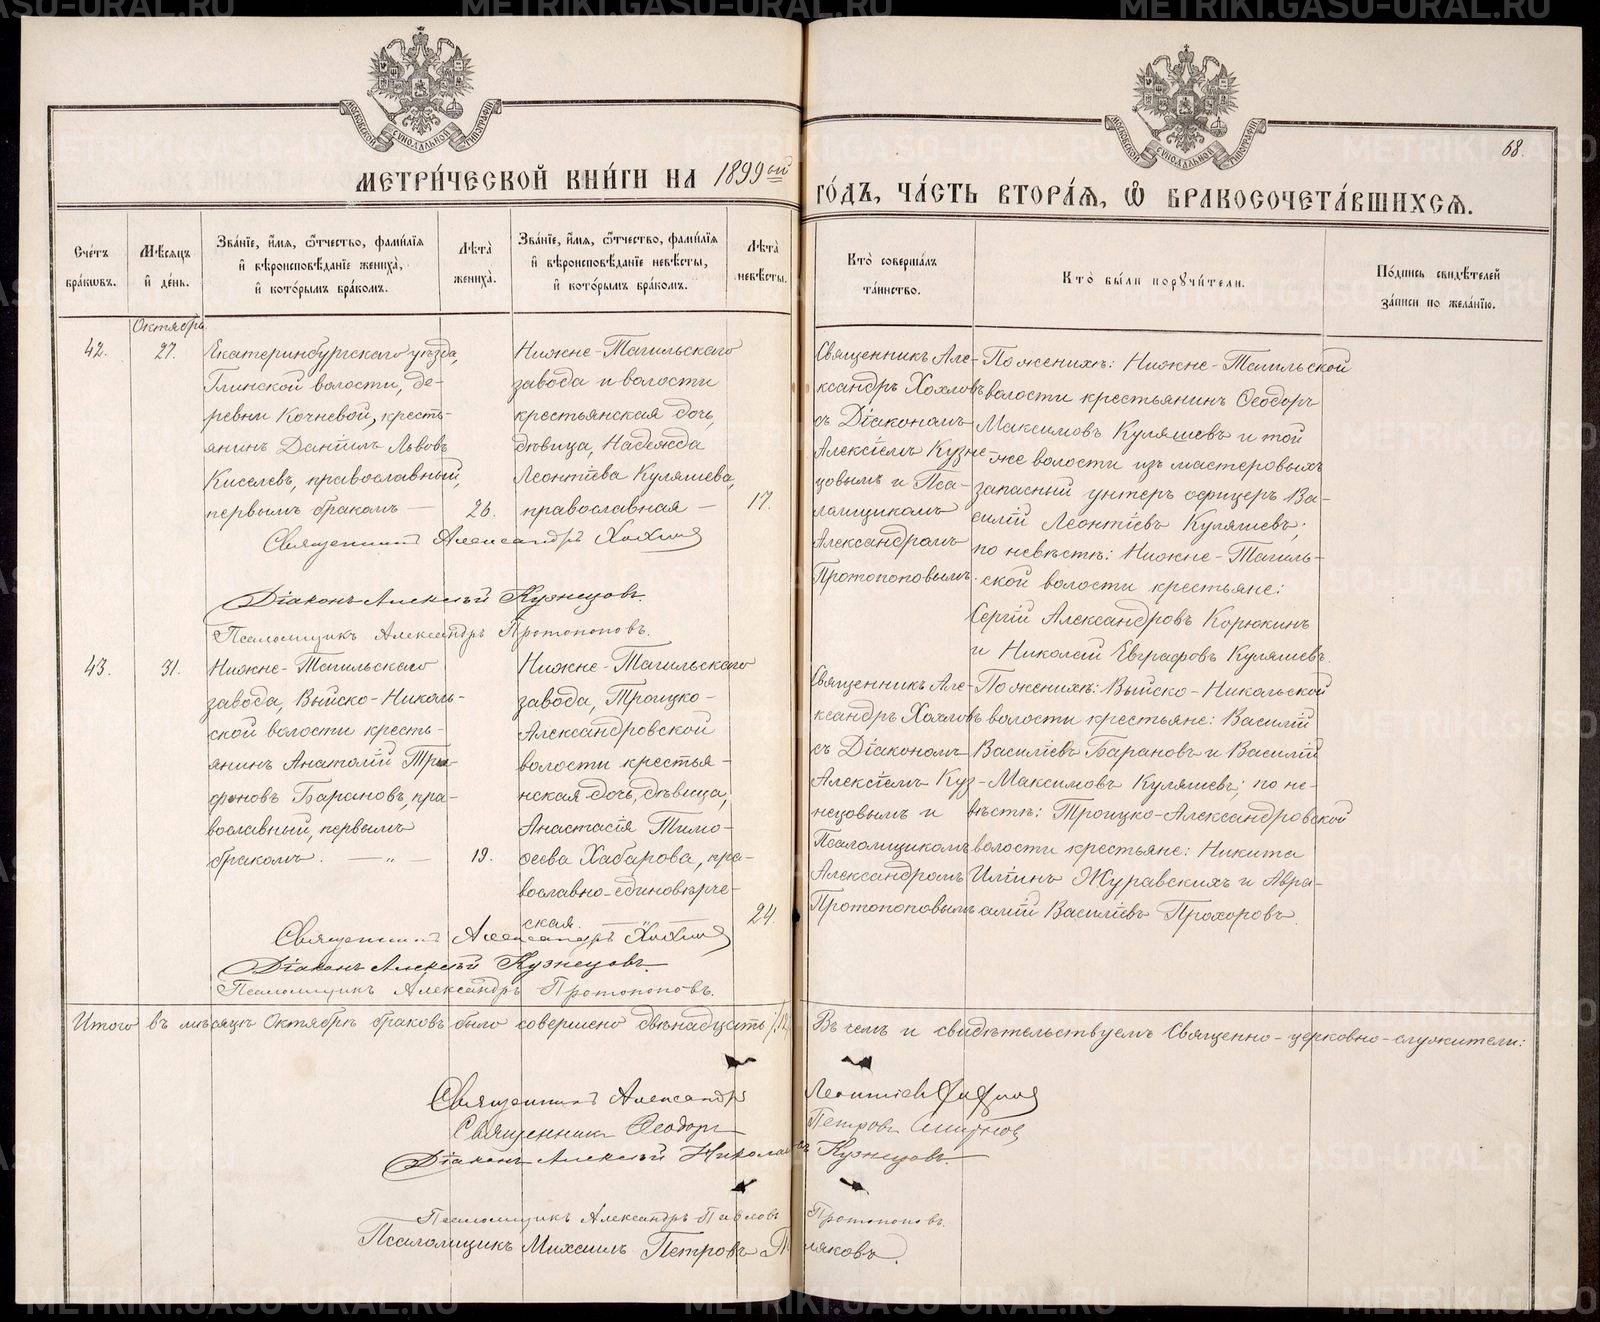 68.
МЕТРИ́ЧЕСКОЙ КНИ́ГИ НА 1899ый ГО́ДЪ, ЧА́СТЬ ВТОРА́Я, Ѽ БРАКОСОЧЕТА́ВШИХСЯ.
МОСКОВСКОЙ СѴНОДАЛЬНОЙ ТИПОГРАФІИ
МОСКОВСКОЙ СѴНОДАЛЬНОЙ ТИПОГРАФІИ
Сче́тъ бра́ковъ.
Мѣ́сяцъ и де́нь.
Зва́нїе, и́мя, ѻ́тчество, фами́лїя и вѣроисповѣ́данїе жениха̀, и кото́рымъ бра́комъ.
Лѣ́та жениха̀.
Зва́нїе, и́мя, ѻ́тчество, фами́лїя и вѣроисповѣ́данїе невѣ́сты, и кото́рымъ бра́комъ.
Лѣ́та невѣ́сты.
Кто̀ соверша́лъ та́инство.
Кто̀ бы́ли порꙋчи́тели.
По́дпись свидѣ́телей за́писи по жела́нїю.
Октябрь
42.
27.
Екатеринбургскаго уѣзда,
Глинской волости, де-
ревни Кочневой, кресть-
янинъ Даніилъ Львовъ
Киселевъ, православный,
первымъ бракомъ —
26.
Нижне-Тагильскаго
завода и волости
крестьянская дочь,
дѣвица, Надежда
Леонтіева Куляшева,
православная —
17.
Священникъ Але-
ксандръ Хохловъ
съ Діакономъ
Алексіемъ Кузне-
цовымъ и Пса-
ломщикомъ
Александромъ
Протопоповымъ.
По женихѣ: Нижне-Тагильской
волости крестьянинъ Ѳеодоръ
Максимовъ Куляшевъ и той
же волости изъ мастеровыхъ
запасный унтеръ офицеръ Ва-
силій Леонтіевъ Куляшевъ;
по невѣстѣ: Нижне-Тагиль-
ской волости крестьяне:
Сергій Александровъ Корюкинъ
и Николай Евграфовъ Куляшевъ.
Священникъ Александръ Хохловъ
Діаконъ Алексѣй Кузнецовъ.
Псаломщикъ Александръ Протопоповъ.
43.
31.
Нижне-Тагильскаго
завода, Выйско-Николь-
ской волости кресть-
янинъ Анатолій Три-
фоновъ Барановъ, пра-
вославный, первымъ
бракомъ. — „ —
19.
Нижне-Тагильскаго
завода, Троицко-
Александровской
волости крестья-
нская дочь, дѣвица,
Анастасія Тимо-
ѳеева Хабарова, пра-
вославно-единовѣрче-
ская. — „ —
24.
Священникъ Але-
ксандръ Хохловъ
съ Діакономъ
Алексіемъ Куз-
нецовымъ и
Псаломщикомъ
Александромъ
Протопоповымъ
По женихѣ: Выйско-Никольской
волости крестьяне: Василій
Василіевъ Барановъ и Василій
Максимовъ Куляшевъ; по не-
вѣстѣ: Троицко-Александровской
волости крестьяне: Никита
Иліинъ Журавскихъ и Авра-
амій Василіевъ Прохоровъ.
Священникъ Александръ Хохловъ
Діаконъ Алексѣй Кузнецовъ.
Псаломщикъ Александръ Протопоповъ.
Итого въ мѣсяцѣ Октябрѣ браковъ было совершено двѣнадцать /12/ Въ чемъ и свидѣтельствуемъ Священно-церковно-служители:
Священникъ Александръ Леонтіевъ Хохловъ
Священникъ Ѳеодоръ Петровъ
Діаконъ Алексѣй Николаевъ Кузнецовъ.
Псаломщикъ Александръ Павловъ Протопоповъ.
Псаломщикъ Михаилъ Петровъ
METRIKI.GASO-URAL.RU